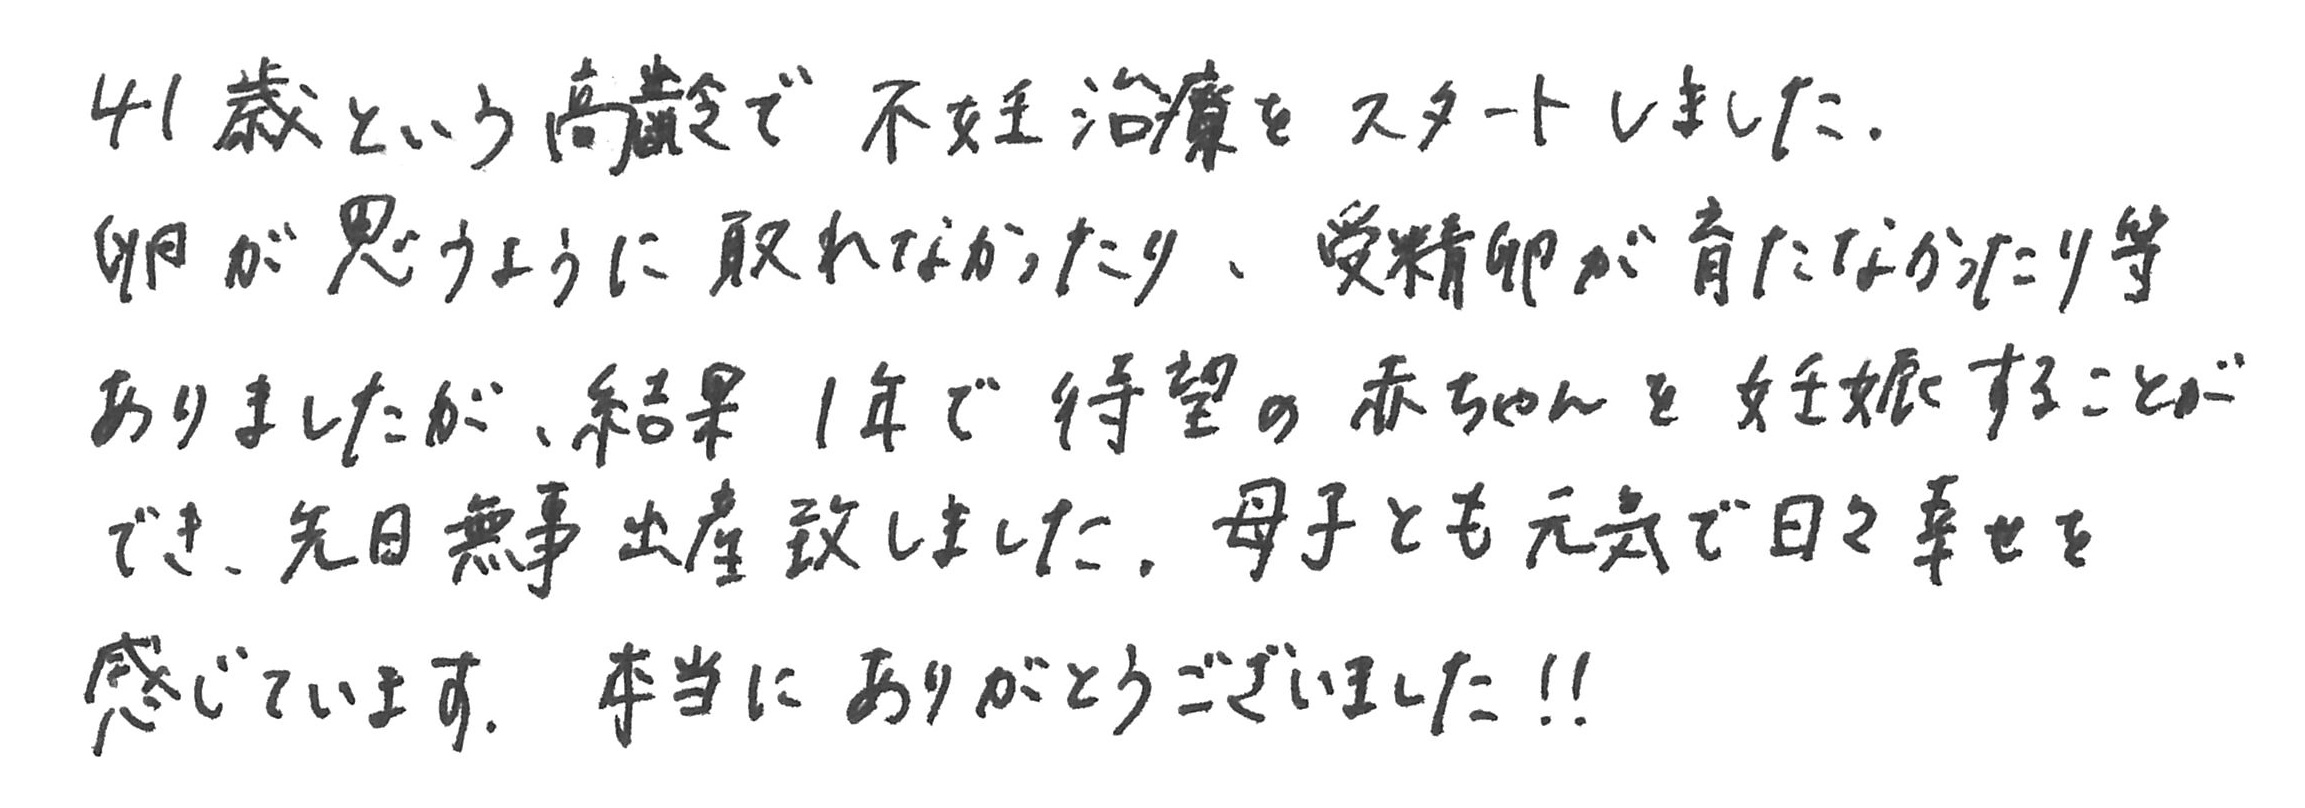 41歳という高齢で不妊治療をスタートしました.
卵が思うように取れなかったり、受精卵が育たなかったり等
ありましたが、結果1年で待望の赤ちゃんを妊娠することが
でき、先日無事出産致しました.母子とも元気で日々幸せを
感じています.本当にありがとうございました!!